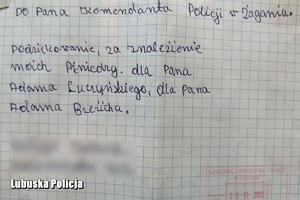 Do Pana Komendanta Policji w Żaganiu.
Podziękowanie, za znaleźienie
moich Pieniędzy. dla Pana
Adama Ruczyńskiego, dla Pana
Adama Bzericha.
Lubuska Policja